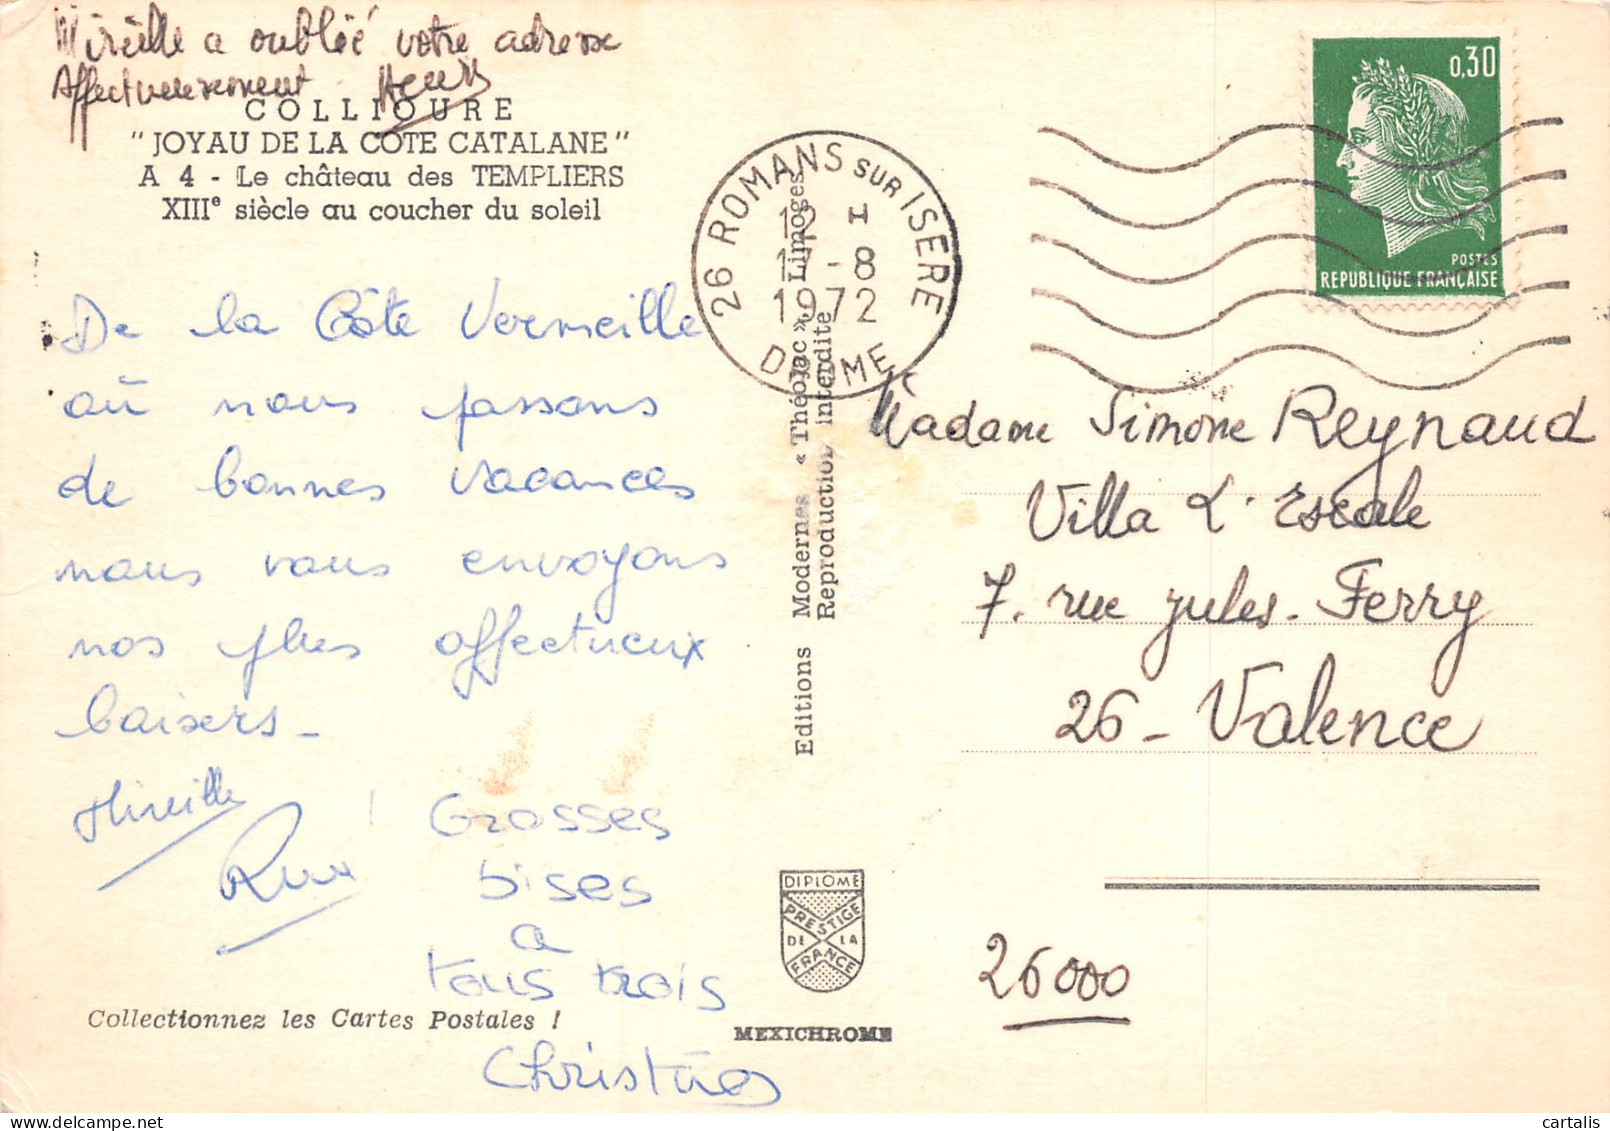 Mireille a oublié votre adresse
Affectueusement
COLLIOURE
"JOYAU DE LA CÔTE CATALANE"
A 4 - Le château des TEMPLIERS
XIIIe siècle au coucher du soleil
De la Côte Vermeille
où nous passons
de bonnes vacances
nous vous envoyons
nos plus affectueux
baisers_
Mireille
Grosses
bises
a
tous trois
Christine
Collectionnez les Cartes Postales !
Editions Modernes « Théojac », Limoges
Reproduction interdite
DIPLOME
PRESTIGE
DE LA
FRANCE
MEXICHROME
26 ROMANS SUR ISERE
17-8
1972
DROME
0,30
POSTES
REPUBLIQUE FRANÇAISE
Madame Simone Reynaud
Villa L'Escale
7. rue Jules-Ferry
26_ Valence
26000
cartalis